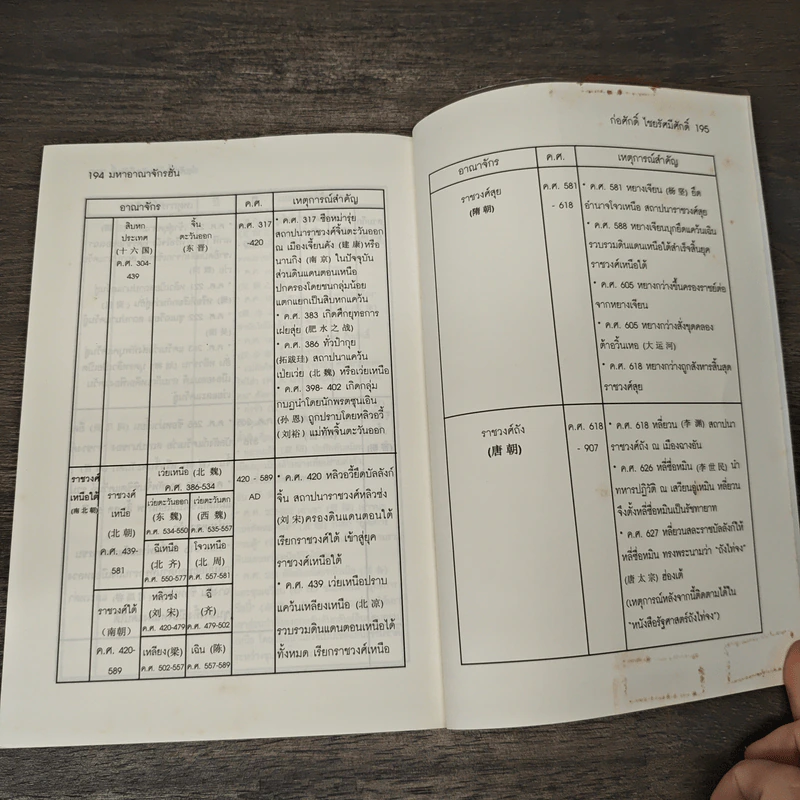 194 มหาอาณาจักรฮั่น
อาณาจักร
ค.ศ.
เหตุการณ์สำคัญ
สิบหก
ประเทศ
(十六国)
ค.ศ. 304-
439
จิ้น
ตะวันออก
(东晋)
ค.ศ. 317
-420
• ค.ศ. 317 ซือหม่ารุ่ย
สถาปนาราชวงศ์จิ้นตะวันออก
ณ เมืองเจี้ยนคัง (建康) หรือ
นานกิง (南京) ในปัจจุบัน
ส่วนดินแดนตอนเหนือ
ปกครองโดยชนกลุ่มน้อย
แตกแยกเป็นสิบหกแคว้น
• ค.ศ. 383 เกิดศึกยุทธการ
เฝยสุ่ย (肥水之战)
• ค.ศ. 386 ทั่วป๋ากุย
(拓跋珪) สถาปนาแคว้น
เป่ยเว่ย (北魏) หรือเว่ยเหนือ
• ค.ศ. 398- 402 เกิดกลุ่ม
กบฏนำโดยนักพรตซุนเอิน
(孙恩) ถูกปราบโดยหลิวอวี้
(刘裕) แม่ทัพจิ้นตะวันออก
ราชวงศ์
เหนือใต้
(南北朝)
ราชวงศ์
เหนือ
(北朝)
ค.ศ. 439-
581
เว่ยเหนือ (北魏)
ค.ศ. 386-534
เว่ยตะวันออก
(东魏)
ค.ศ. 534-550
เว่ยตะวันตก
(西魏)
ค.ศ. 535-557
ฉีเหนือ
(北齐)
ค.ศ. 550-577
โจวเหนือ
(北周)
ค.ศ. 557-581
ราชวงศ์ใต้
(南朝)
ค.ศ. 420-
589
หลิวซ่ง
(刘宋)
ค.ศ. 420-479
ฉี
(齐)
ค.ศ. 479-502
เหลียง(梁)
ค.ศ. 502-557
เฉิน (陈)
ค.ศ. 557-589
420 - 589
AD
• ค.ศ. 420 หลิวอวี้ยึดบัลลังก์
จิ้น สถาปนาราชวงศ์หลิวซ่ง
(刘宋)ครองดินแดนตอนใต้
เรียกราชวงศ์ใต้ เข้าสู่ยุค
ราชวงศ์เหนือใต้
• ค.ศ. 439 เว่ยเหนือปราบ
แคว้นเหลียงเหนือ (北凉)
รวบรวมดินแดนตอนเหนือได้
ทั้งหมด เรียกราชวงศ์เหนือ
ก่อศักดิ์ ไชยรัศมีศักดิ์ 195
อาณาจักร
ค.ศ.
เหตุการณ์สำคัญ
ราชวงศ์สุย
(隋朝)
ค.ศ. 581
- 618
• ค.ศ. 581 หยางเจียน (杨坚) ยึด
อำนาจโจวเหนือ สถาปนาราชวงศ์สุย
• ค.ศ. 588 หยางเจียนบุกยึดแคว้นเฉิน
รวบรวมดินแดนเหนือใต้สำเร็จสิ้นยุค
ราชวงศ์เหนือใต้
• ค.ศ. 605 หยางกว่างขึ้นครองราชย์ต่อ
จากหยางเจียน
• ค.ศ. 605 หยางกว่างสั่งขุดคลอง
ต้าอวิ้นเหอ (大运河)
• ค.ศ. 618 หยางกว่างถูกสังหารสิ้นสุด
ราชวงศ์สุย
ราชวงศ์ถัง
(唐朝)
ค.ศ. 618
- 907
• ค.ศ. 618 หลี่ยวน (李渊) สถาปนา
ราชวงศ์ถัง ณ เมืองฉางอัน
• ค.ศ. 626 หลี่ซื่อหมิน (李世民) นำ
ทหารปฏิวัติ ณ เสวียนอู่เหมิน หลี่ยวน
จึงตั้งหลี่ซื่อหมินเป็นรัชทายาท
• ค.ศ. 627 หลี่ยวนสละราชบัลลังก์ให้
หลี่ซื่อหมิน ทรงพระนามว่า "ถังไท่จง"
(唐太宗) ฮ่องเต้
(เหตุการณ์หลังจากนี้ติดตามได้ใน
"หนังสือรัฐศาสตร์ถังไท่จง")